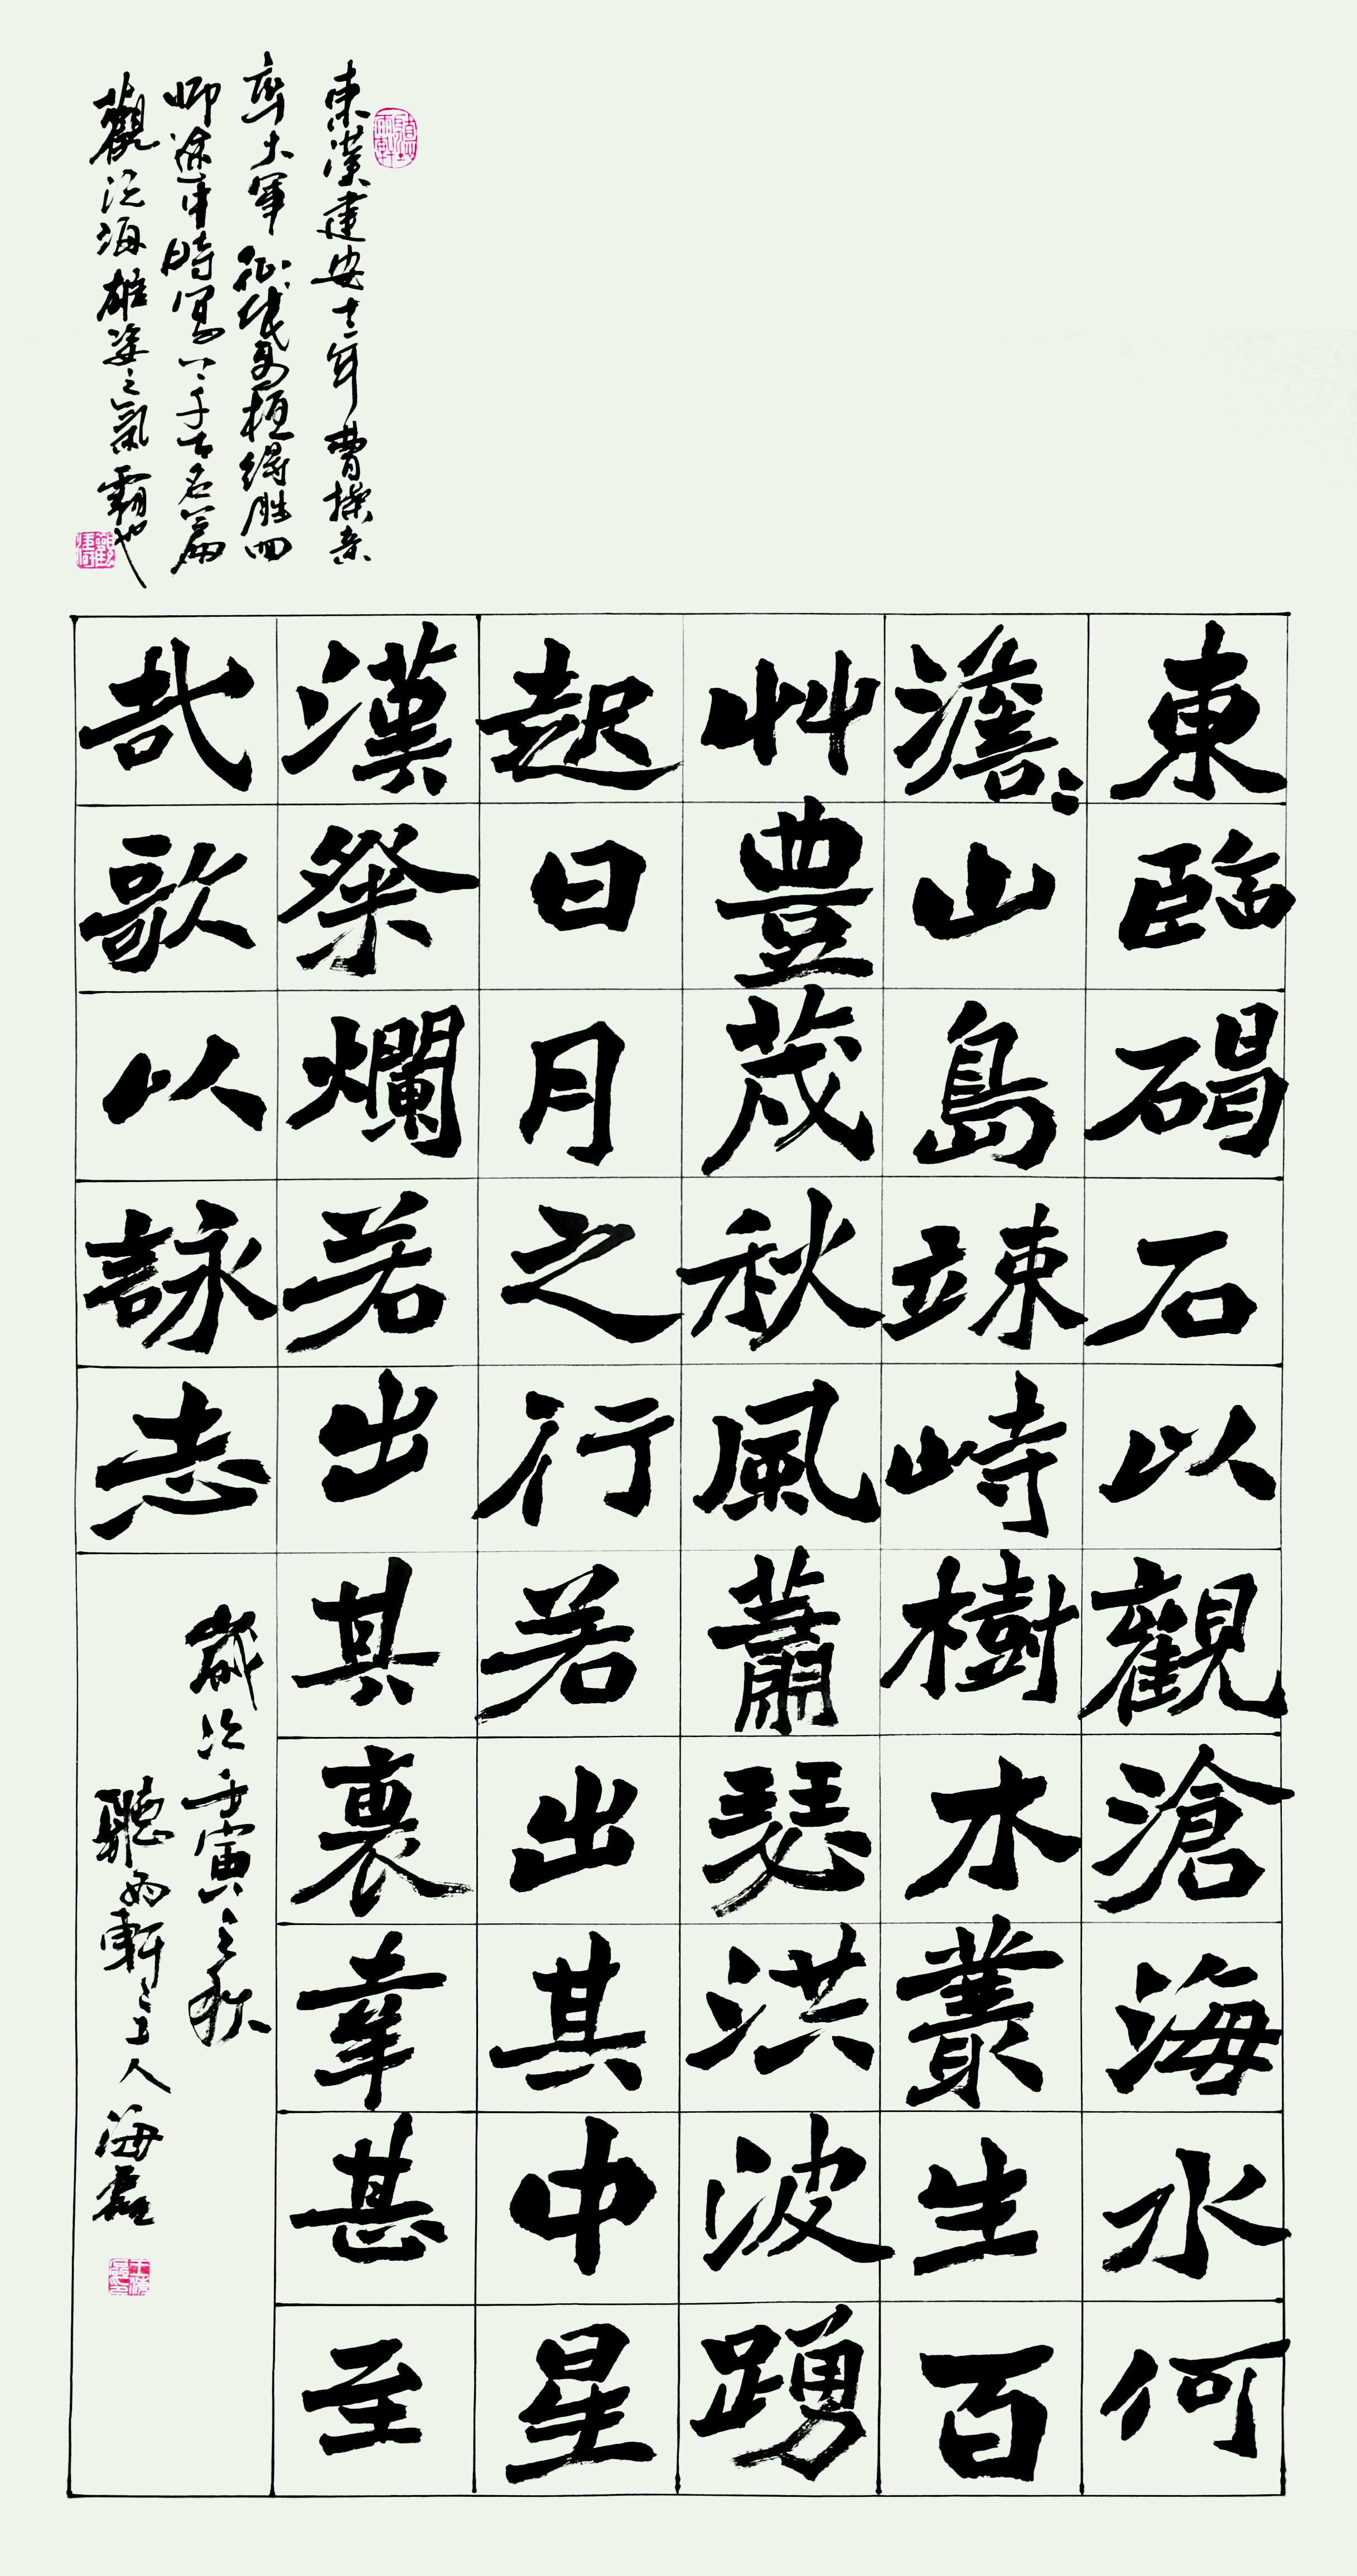 東漢建安十二年曹操親
率大軍征伐烏桓得勝回
師途中時寫下千古名篇
觀滄海雄姿之氣霸也
東臨碣石以觀滄海水何
澹〻山島竦峙樹木叢生百
艸豐茂秋風蕭瑟洪波踴
起日月之行若出其中星
漢粲爛若出其裏幸甚至
哉歌以詠志
歲次壬寅之秋
聽雨軒主人海磊